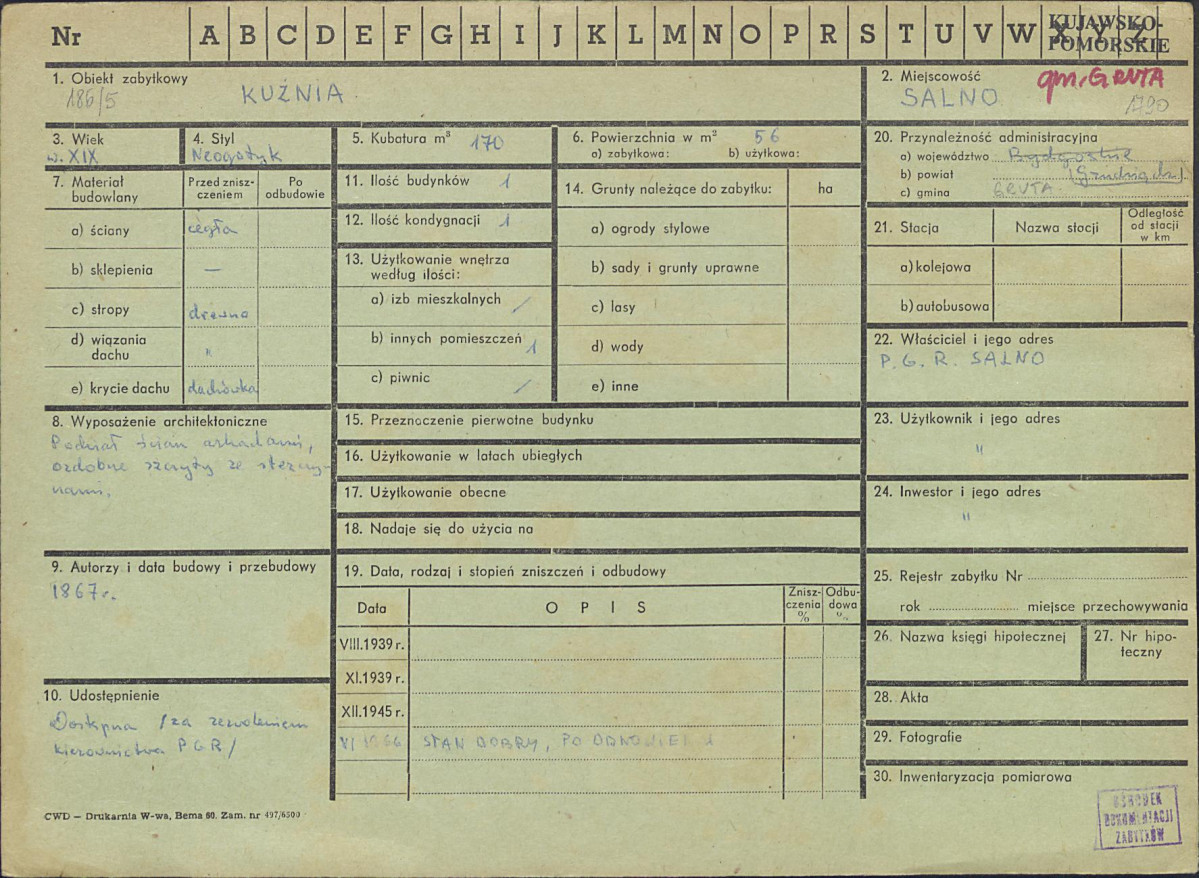 Nr A B C D E F G H I J K L M N O P R S T U V W X Y Z
KUJAWSKO-
POMORSKIE
1. Obiekt zabytkowy
186/5
KUŹNIA
2. Miejscowość
gm. GRUTA
SALNO
1790
3. Wiek
w. XIX
4. Styl
Neogotyk
5. Kubatura m³ 170
6. Powierzchnia w m² 56
a) zabytkowa: b) użytkowa:
7. Materiał
budowlany
Przed znisz-
czeniem
Po
odbudowie
a) ściany cegła
b) sklepienia —
c) stropy drewno
d) wiązania
dachu "
e) krycie dachu dachówka
8. Wyposażenie architektoniczne
Podział ścian arkadami,
ozdobne szczyty ze sterczy-
nami.
9. Autorzy i data budowy i przebudowy
1867 r.
10. Udostępnienie
Dostępna /za zezwoleniem
kierownictwa PGR/
11. Ilość budynków 1
12. Ilość kondygnacji 1
13. Użytkowanie wnętrza
według ilości:
a) izb mieszkalnych /
b) innych pomieszczeń 1
c) piwnic /
14. Grunty należące do zabytku: ha
a) ogrody stylowe
b) sady i grunty uprawne
c) lasy
d) wody
e) inne
15. Przeznaczenie pierwotne budynku
16. Użytkowanie w latach ubiegłych
17. Użytkowanie obecne
18. Nadaje się do użycia na
19. Data, rodzaj i stopień zniszczeń i odbudowy
Data OPIS
Znisz-
czenia
%
Odbu-
dowa
%
VIII.1939 r.
XI.1939 r.
XII.1945 r.
VI 1966 STAN DOBRY, PO ODNOWIENIU
20. Przynależność administracyjna
a) województwo Bydgoskie
b) powiat (Grudziądz)
c) gmina GRUTA
21. Stacja Nazwa stacji
Odległość
od stacji
w km
a) kolejowa
b) autobusowa
22. Właściciel i jego adres
P. G. R. SALNO
23. Użytkownik i jego adres
"
24. Inwestor i jego adres
"
25. Rejestr zabytku Nr
rok miejsce przechowywania
26. Nazwa księgi hipotecznej
27. Nr hipo-
teczny
28. Akta
29. Fotografie
30. Inwentaryzacja pomiarowa
CWD — Drukarnia W-wa, Bema 60. Zam. nr 497/6500
OŚRODEK
DOKUMENTACJI
ZABYTKÓW